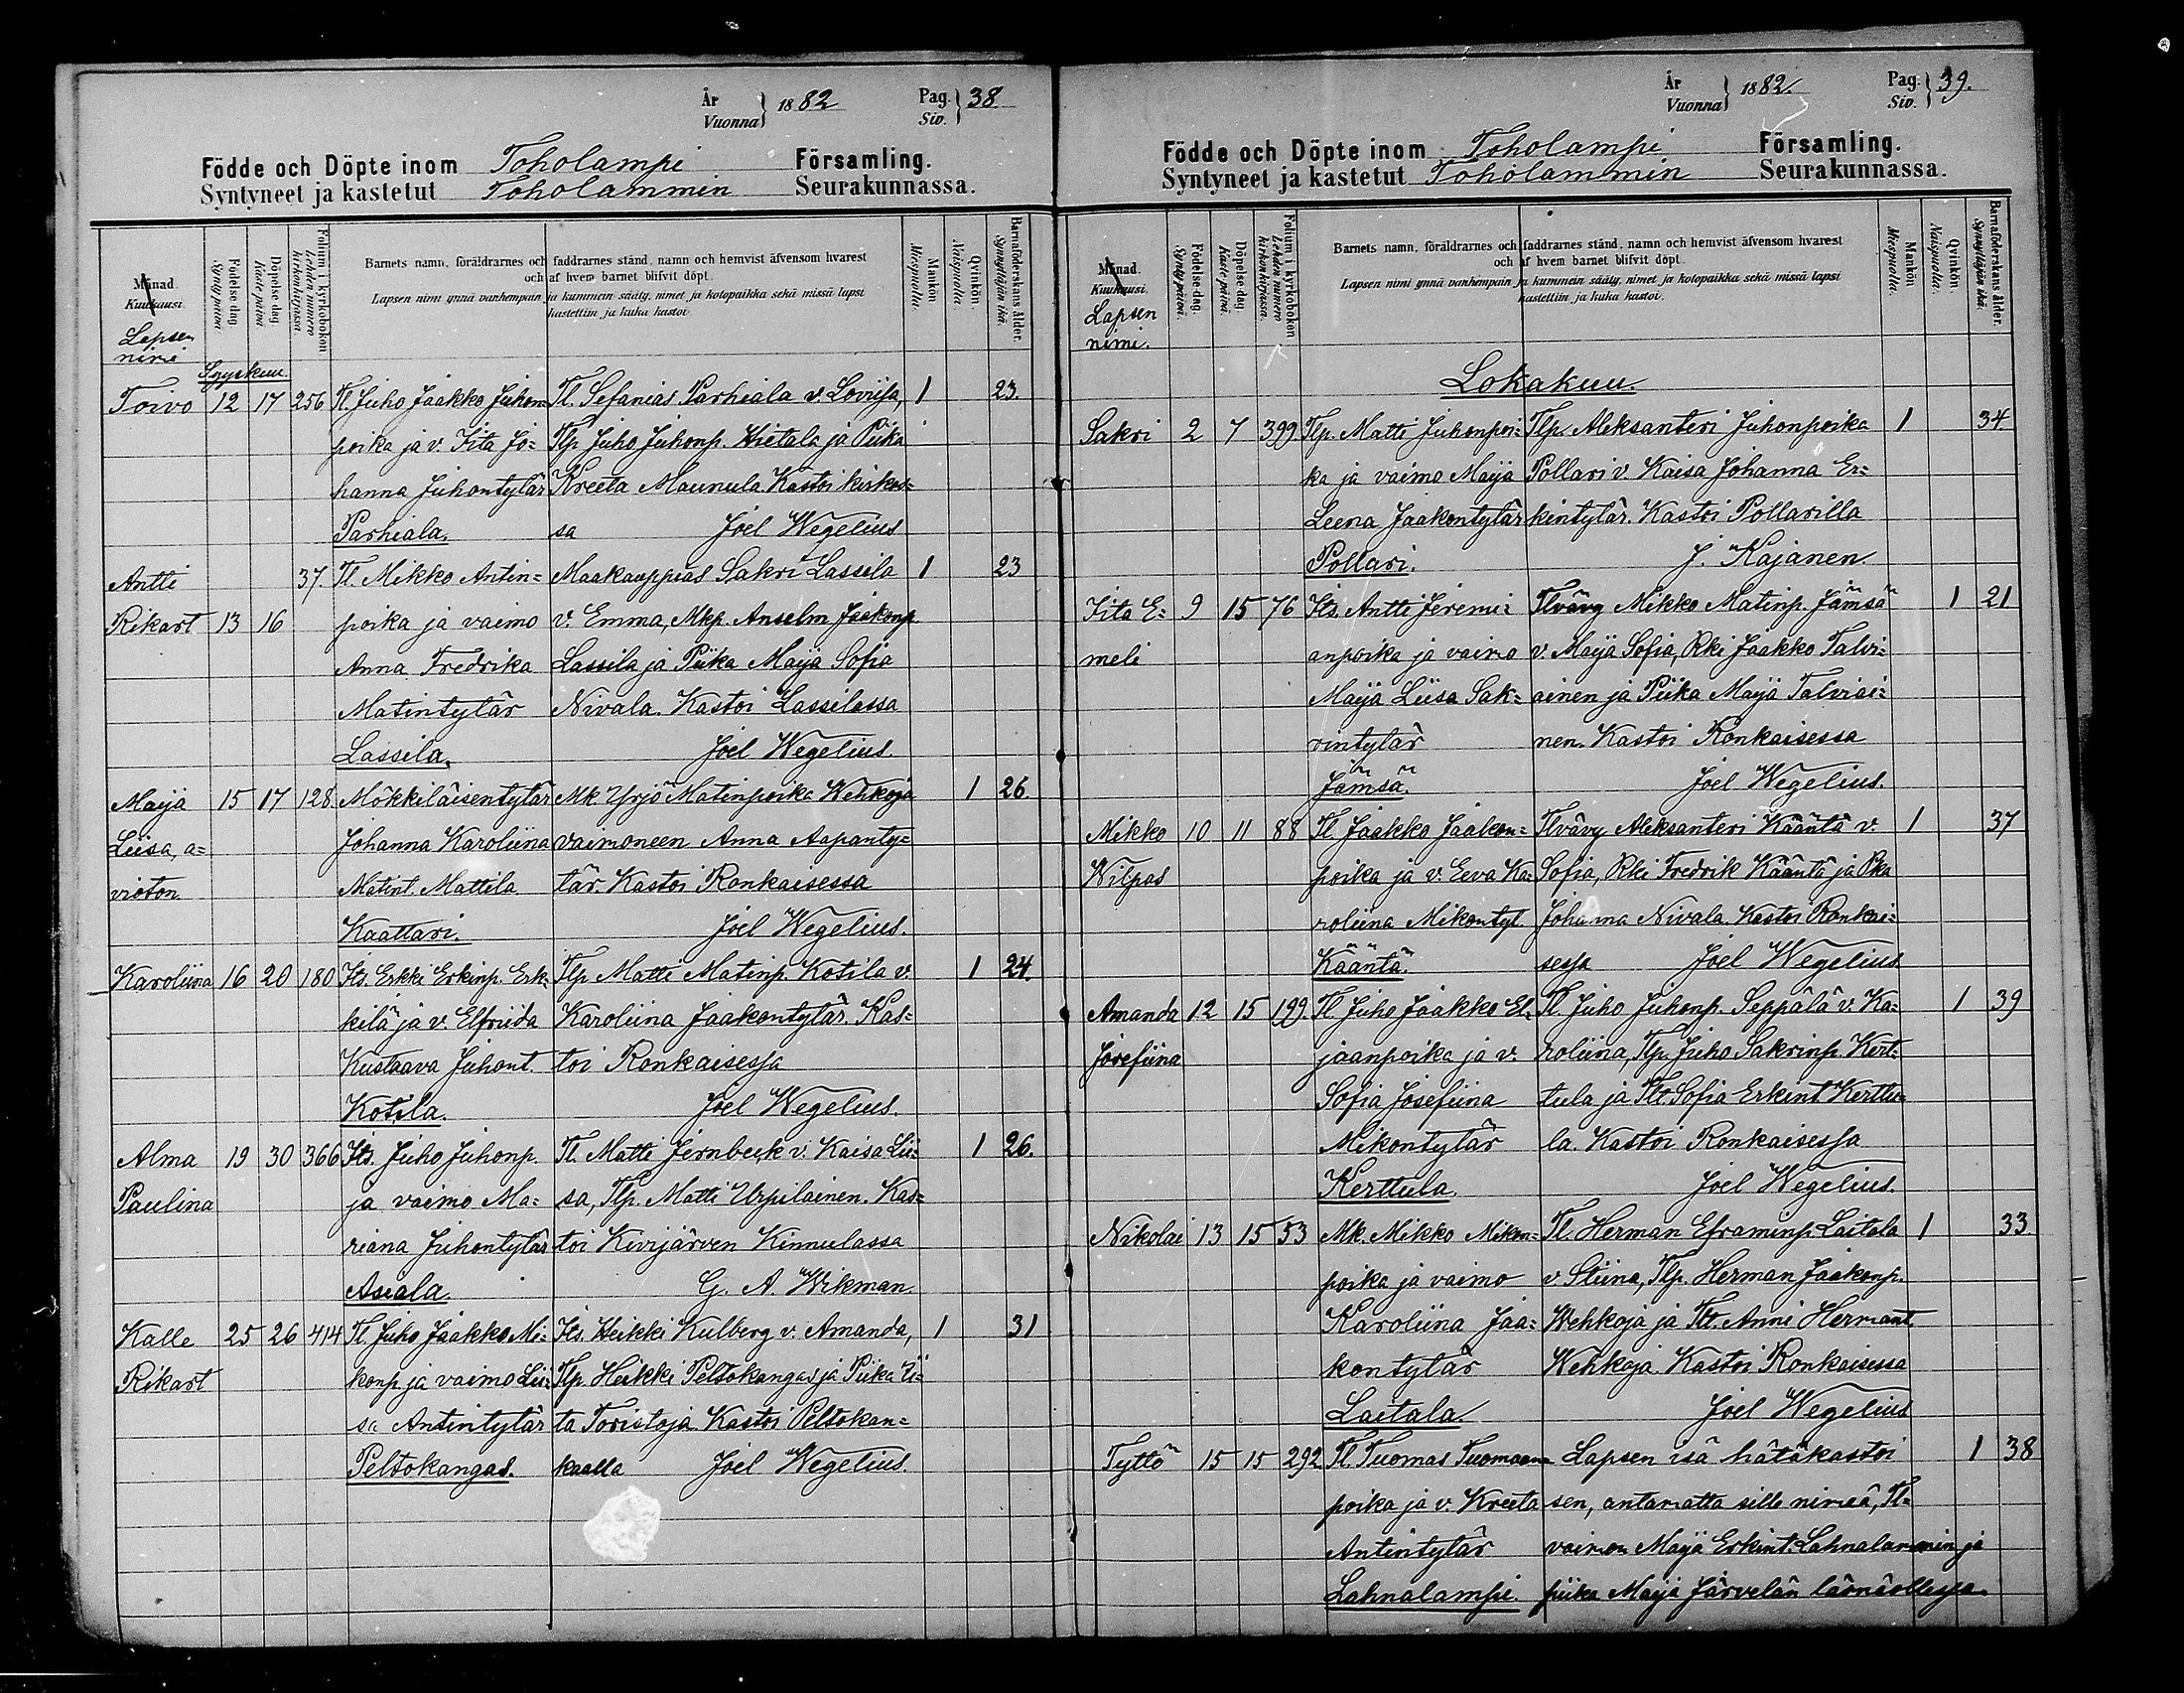 År
Vuonna } 1882
Pag.
Siv. } 38
Födde och Döpte inom Toholampi Församling.
Syntyneet ja kastetut Toholammin Seurakunnassa.
Månad.
Kuukausi.
Lapsen nimi
Födelse dag.
Syntypäivä.
Döpelse dag.
Kastepäivä.
Folium i kyrkoboken
Lehden numero kirkonkirjassa.
Barnets namn, föräldrarnes och faddrarnes stånd, namn och hemvist äfvensom hvarest
och af hvem barnet blifvit döpt.
Lapsen nimi ynnä vanhempain ja kummein sääty, nimet ja kotopaikka sekä missä lapsi
kastettiin ja kuka kastoi.
Mankön
Miespuolia.
Qvinkön.
Naispuolia.
Barnaföderskans ålder.
Synnyttäjän ikä.
Syyskuu.
Toivo 12 17 256 Tl. Juho Jaakko Juhon= Tl. Sefanias Parhiala v. Loviisa, 1 23.
poika ja v. Iita Jo= Tlp. Juho Juhonp. Hietala ja Piika
hanna Juhontytär Kreeta Maunula. Kastoi kirkos=
Parhiala. sa Joel Wegelius
Antti 37. Tl. Mikko Antin= Maakauppias Sakri Lassila 1 23
Rikart 13 16 poika ja vaimo v. Emma, Mkp. Anselm Jaakonp
Anna Fredrika Lassila ja Piika Maija Sofia
Matintytär Nivala. Kastoi Lassilassa
Lassila. Joel Wegelius.
Maija 15 17 128 Mökkiläisentytär Mk. Yrjö Matinpoika Wehkoja 1 26.
Liisa, a= Johanna Karoliina vaimoneen Anna Aapanty=
vioton Matint. Mattila tär. Kastoi Ronkaisessa
Kaattari. Joel Wegelius.
Karoliina 16 20 180 Its. Erkki Erkinp. Erk= Tlp. Matti Matinp. Kotila v. 1 24.
kilä ja v. Elfriida Karoliina Jaakontytär. Kas=
Kustaava Juhont. toi Ronkaisessa
Kotila. Joel Wegelius.
Alma 19 30 366 Its. Juho Juhonp. Tl. Matti Jernbeck v. Kaisa Lii= 1 26.
Paulina ja vaimo Ma= sa, Tlp. Matti Urpilainen. Kas=
riana Juhontytär toi Kivijärven Kinnulassa
Asiala. G. A. Wikman.
Kalle 25 26 414 Tl. Juho Jaakko Mi= Its. Heikki Kulberg v. Amanda, 1 31
Rikart konp. ja vaimo Lii= Tlp. Heikki Peltokangas ja Piika Ii=
sa Antintytär ta Toristoja. Kastoi Peltokan=
Peltokangas. kaalla Joel Wegelius.
År
Vuonna } 1882.
Pag.
Siv. } 39.
Födde och Döpte inom Toholampi Församling.
Syntyneet ja kastetut Toholammin Seurakunnassa.
Månad.
Kuukausi.
Lapsen nimi.
Födelse dag.
Syntypäivä.
Döpelse dag.
Kastepäivä.
Folium i kyrkoboken
Lehden numero kirkonkirjassa.
Barnets namn, föräldrarnes och faddrarnes stånd, namn och hemvist äfvensom hvarest
och af hvem barnet blifvit döpt.
Lapsen nimi ynnä vanhempain ja kummein sääty, nimet ja kotopaikka sekä missä lapsi
kastettiin ja kuka kastoi.
Mankön
Miespuolia.
Qvinkön.
Naispuolia.
Barnaföderskans ålder.
Synnyttäjän ikä.
Lokakuu.
Sakri 2 7 399 Tlp. Matti Juhonpoi= Tlp. Aleksanteri Juhonpoika 1 34
ka ja vaimo Maija Pollari v. Kaisa Johanna Er=
Leena Jaakontytär kintytär. Kastoi Pollarilla
Pollari. J. Kajanen.
Iita E= 9 15 76 Its. Antti Jeremi= Tlvävy Mikko Matinp. Jämsä 1 21
meli anpoika ja vaimo v. Maija Sofia, Rki Jaakko Talvi=
Maija Liisa Sak= ainen ja Piika Maija Talviai=
rintytär nen. Kastoi Ronkaisessa
Jämsä. Joel Wegelius.
Mikko 10 11 88 Tl. Jaakko Jaakon= Tlvävy Aleksanteri Kääntä v. 1 37
Wilpas poika ja v. Eeva Ka= Sofia, Rki Fredrik Kääntä ja Pka
roliina Mikontyt. Johanna Nivala. Kastoi Ronkai=
Kääntä. sessa Joel Wegelius.
Amanda 12 15 199. Tl. Juho Jaakko El= Tl. Juho Juhonp. Seppälä v. Ka= 1 39
Josefiina jaanpoika ja v. roliina, Tlp. Juho Sakrinp. Kert=
Sofia Josefiina tula ja Tlt. Sofia Erkint Kerttu=
Mikontytär la. Kastoi Ronkaisessa
Kerttula. Joel Wegelius.
Nikolai 13 15 53 Mk. Mikko Mikon= Tl. Herman Eframinp. Laitala 1 33.
poika ja vaimo v. Stiina, Tlp. Herman Jaakonp.
Karoliina Jaa= Wehkoja ja Tlt. Anni Hermant.
kontytär Wehkoja. Kastoi Ronkaisessa
Laitala. Joel Wegelius
Tyttö 15 15 292 Tl. Tuomas Tuomaan= Lapsen isä hätäkastoi 1 38
poika ja v. Kreeta sen, antamatta sille nimeä, Tl=
Antintytär vaimon Maija Erkint. Lahnalammin ja
Lahnalampi. piika Maija Järvelän läsnäollessa.